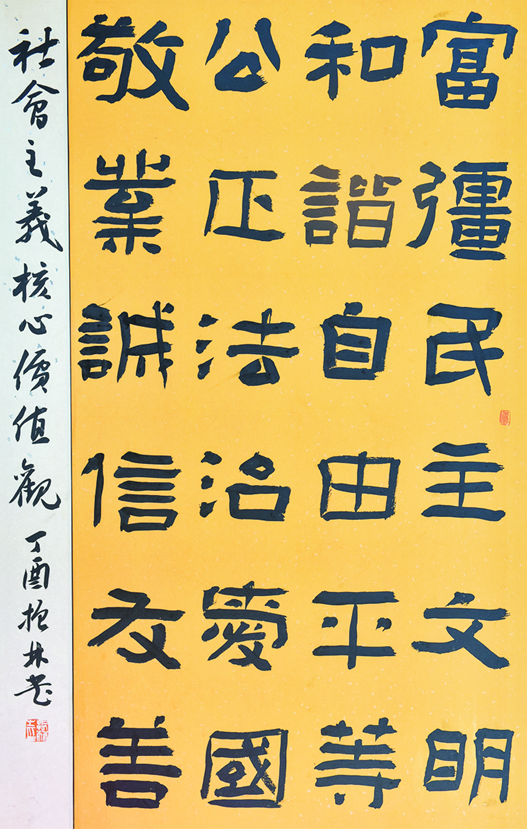 富彊民主文明
和諧自由平等
公正法治愛國
敬業誠信友善
社會主義核心價值觀
丁酉 林書